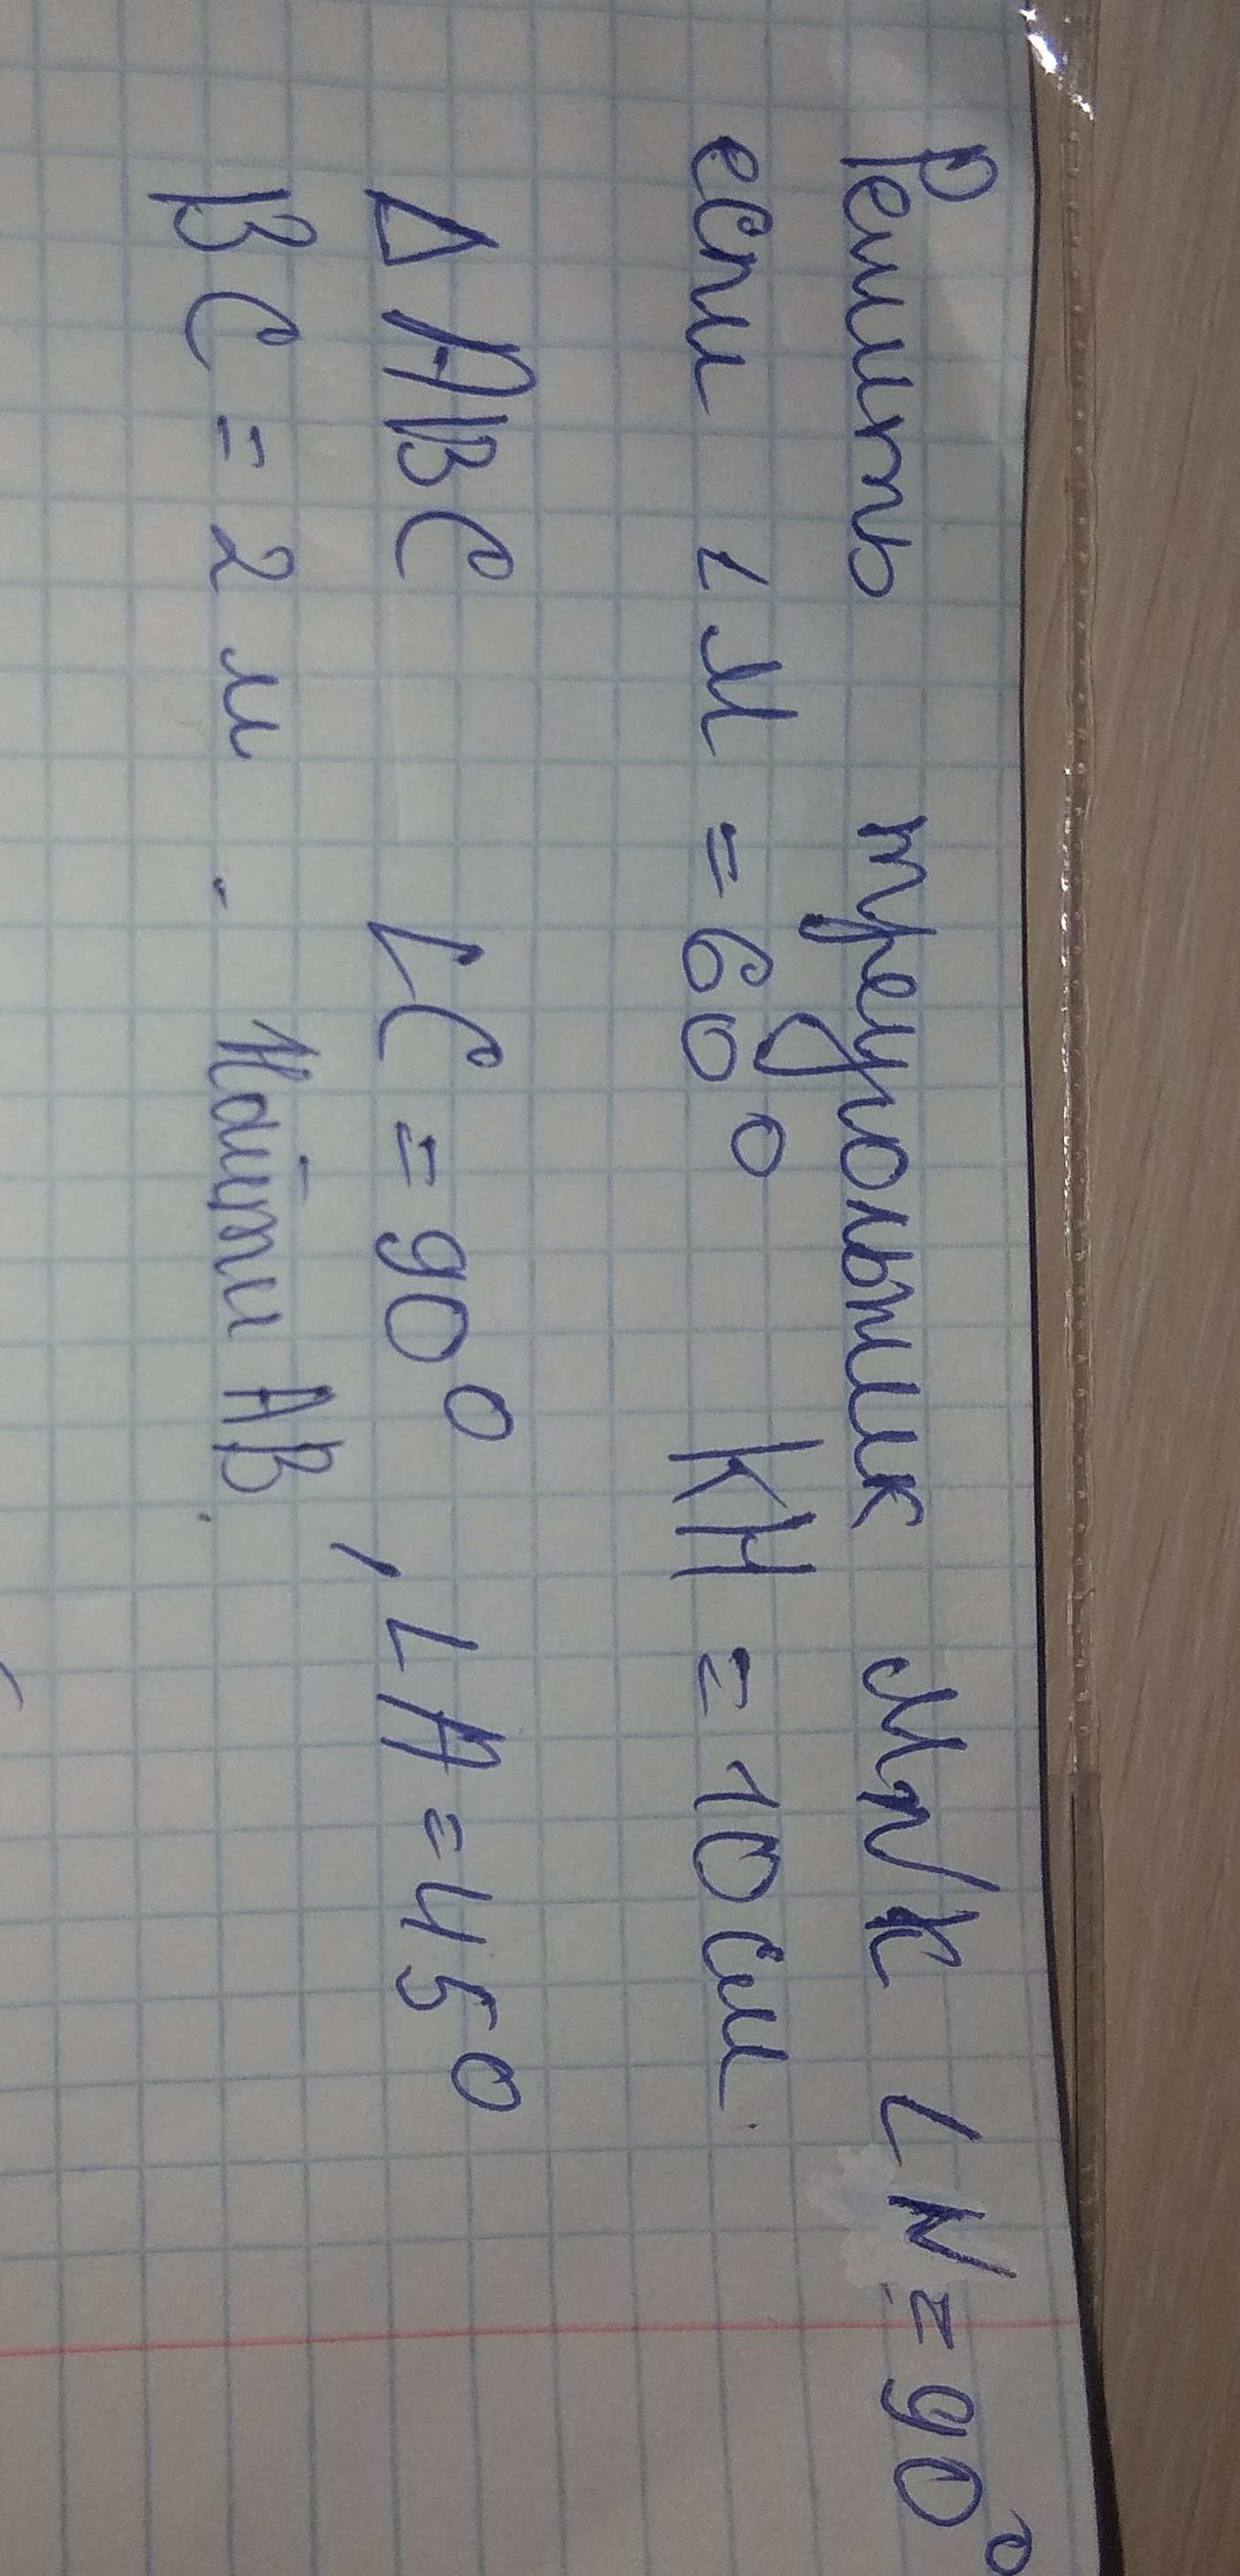 Решить треугольник MNK ∠N = 90°
если ∠M = 60° KH = 10 см.
Δ ABC ∠C = 90°, ∠A = 45°
BC = 2 м. Найти AB.